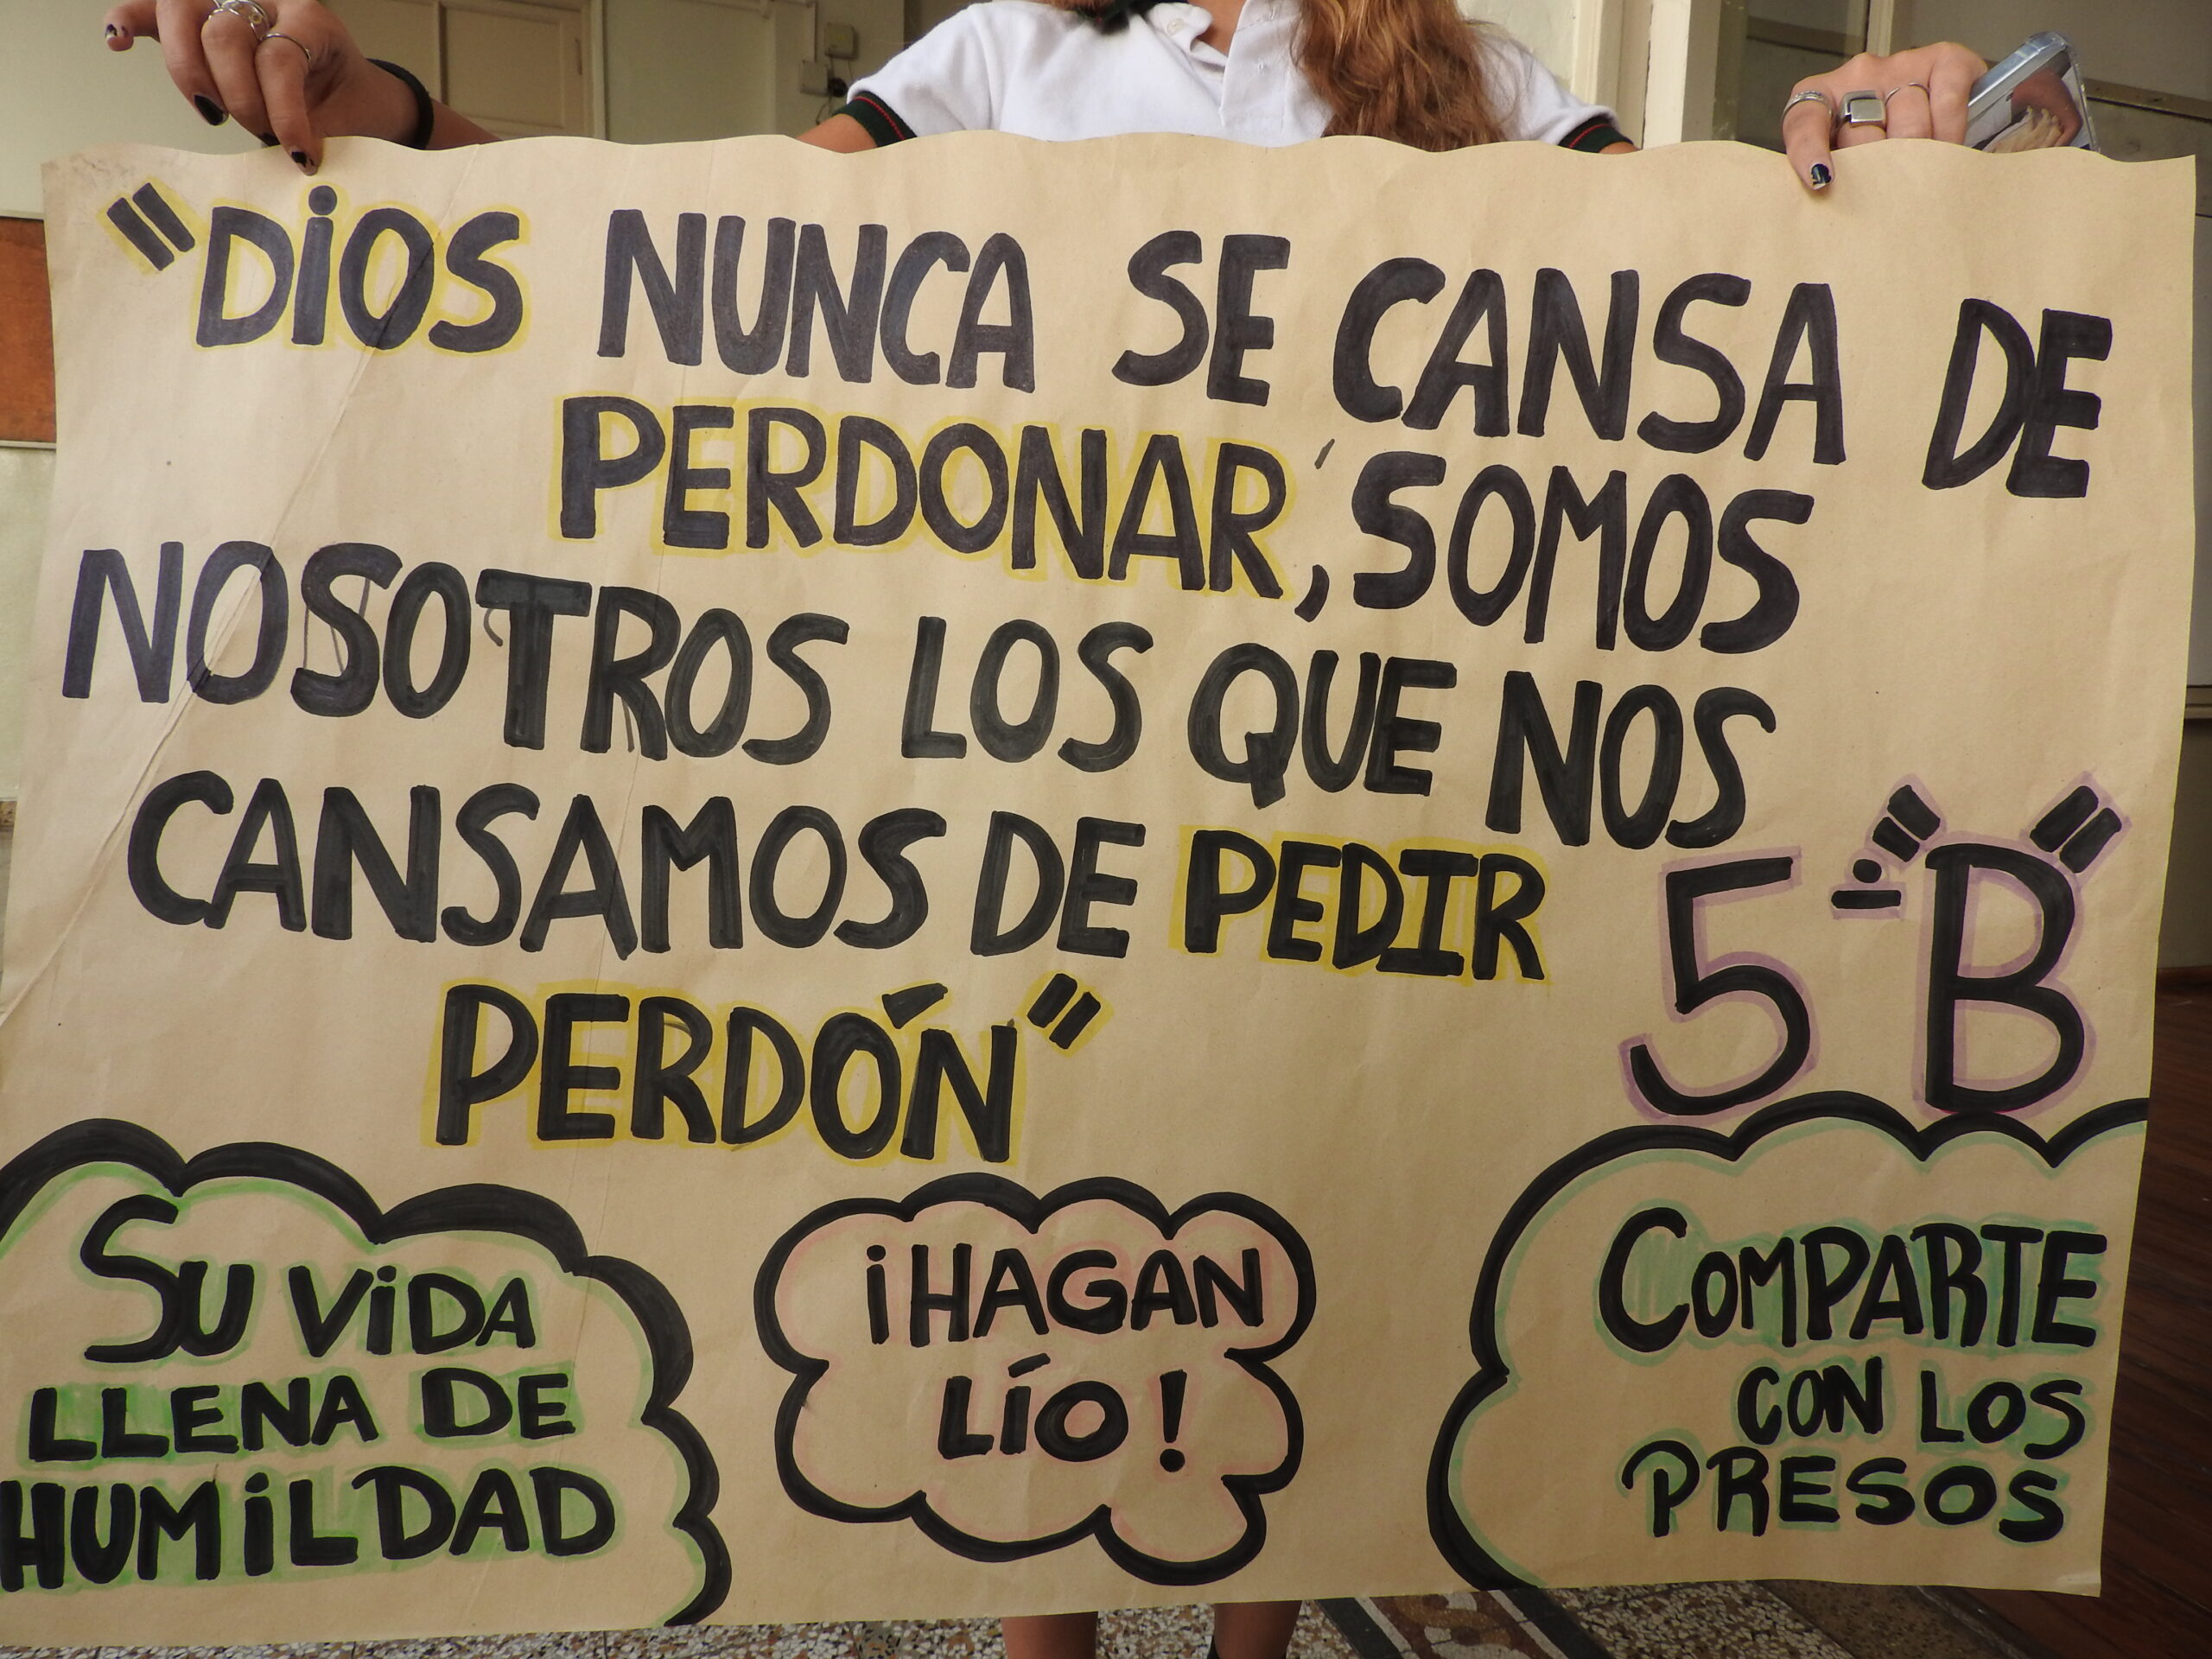 "DiOS NUNCA SE CANSA DE
PERDONAR, SOMOS
NOSOTROS LOS QUE NOS
CANSAMOS DE PEDIR
PERDÓN"
5°"B"
SU ViDA
LLENA DE
HUMiLDAD
¡HAGAN
LÍO!
COMPARTE
CON LOS
PRESOS